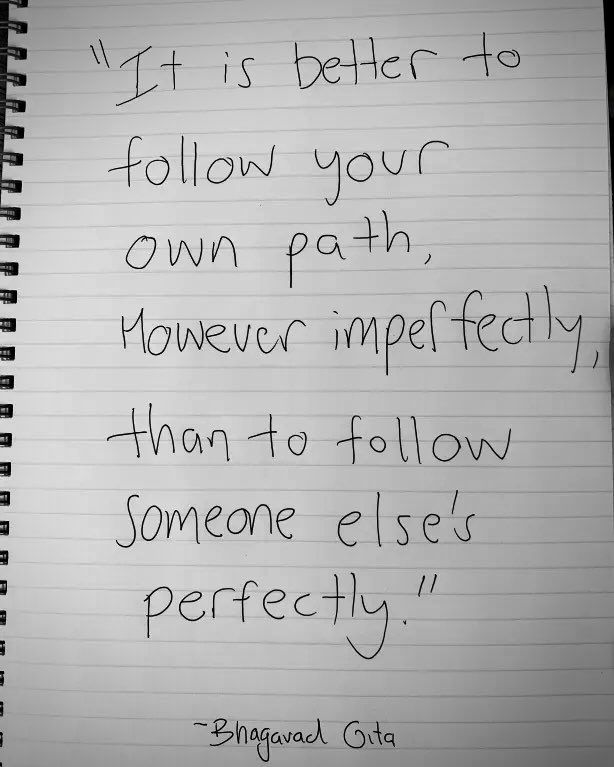 "It is better to
follow your
own path,
However imperfectly,
than to follow
someone else's
perfectly."
~Bhagavad Gita